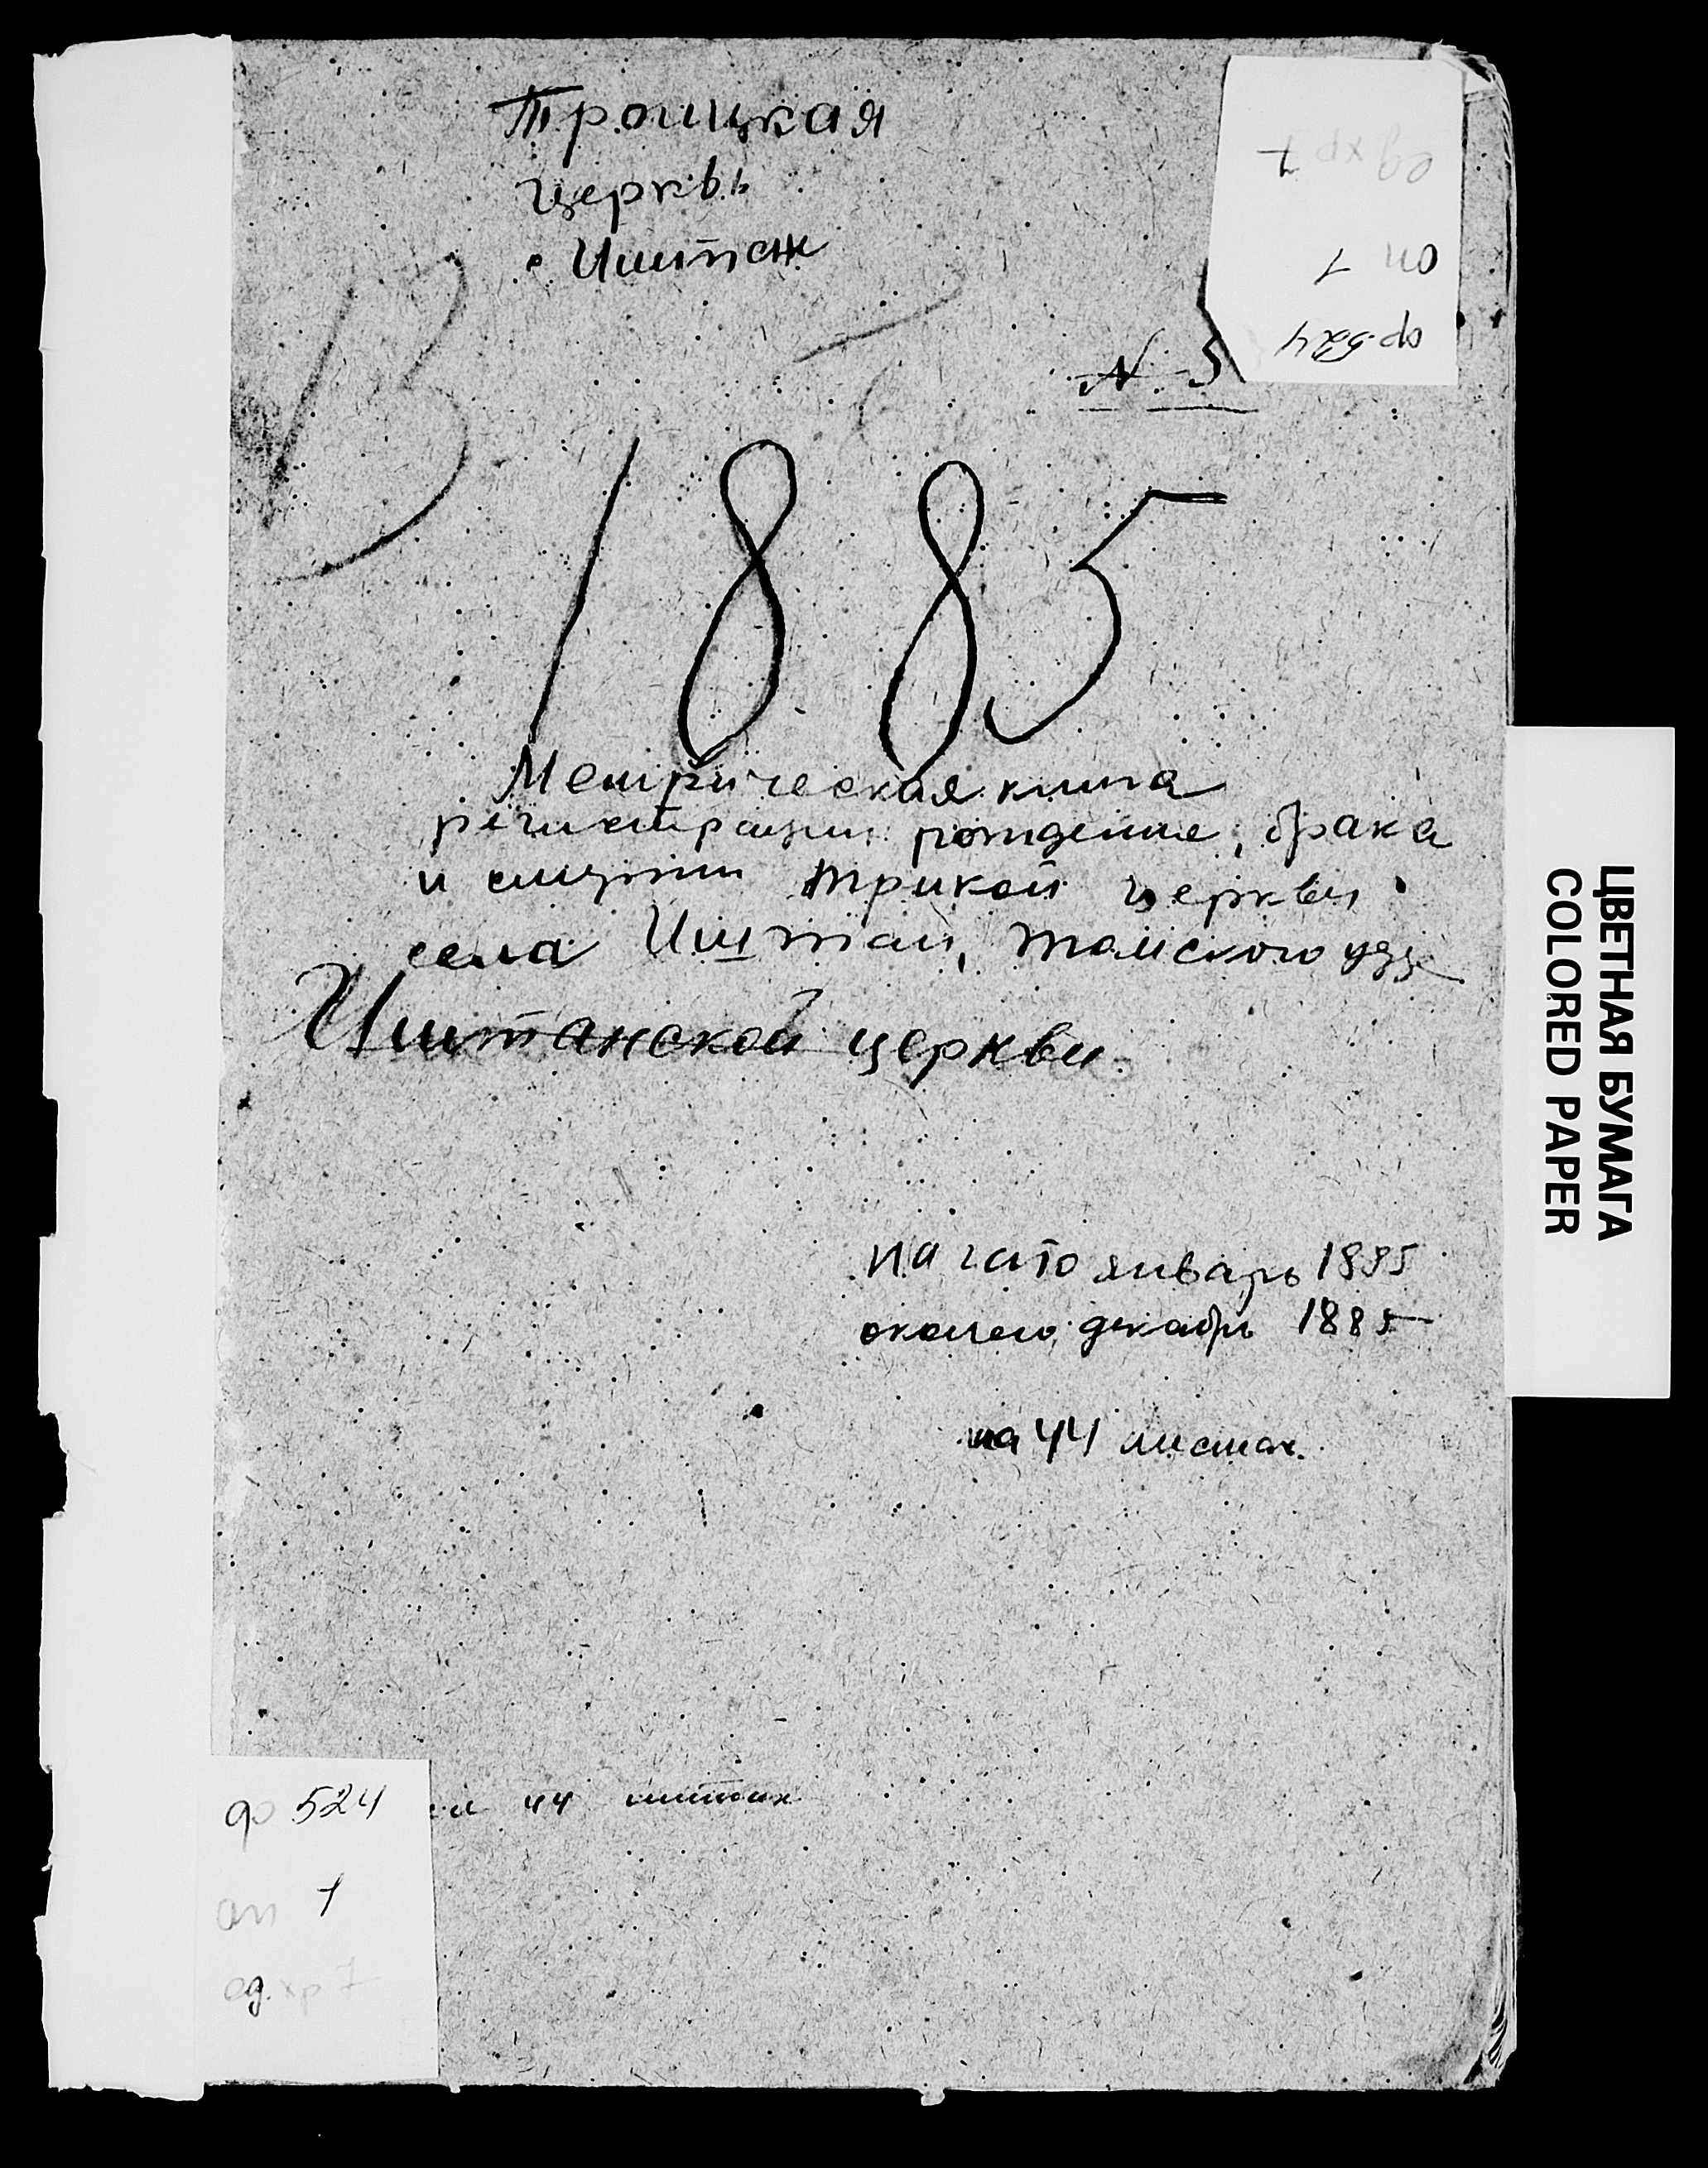 Троицкая
церквь
с Иштан
ед хр 7
оп 1
ф 524
N 5
1885
Метрическая книга
регистрации рождение, брака
и смерти церкви
села Иштан, Томского уез
Иштанской церкви
начато январь 1885
окончено декабрь 1885
на 44 листах.
на 44 листах
ф 524
оп 1
ед. хр 7
ЦВЕТНАЯ БУМАГА
COLORED PAPER